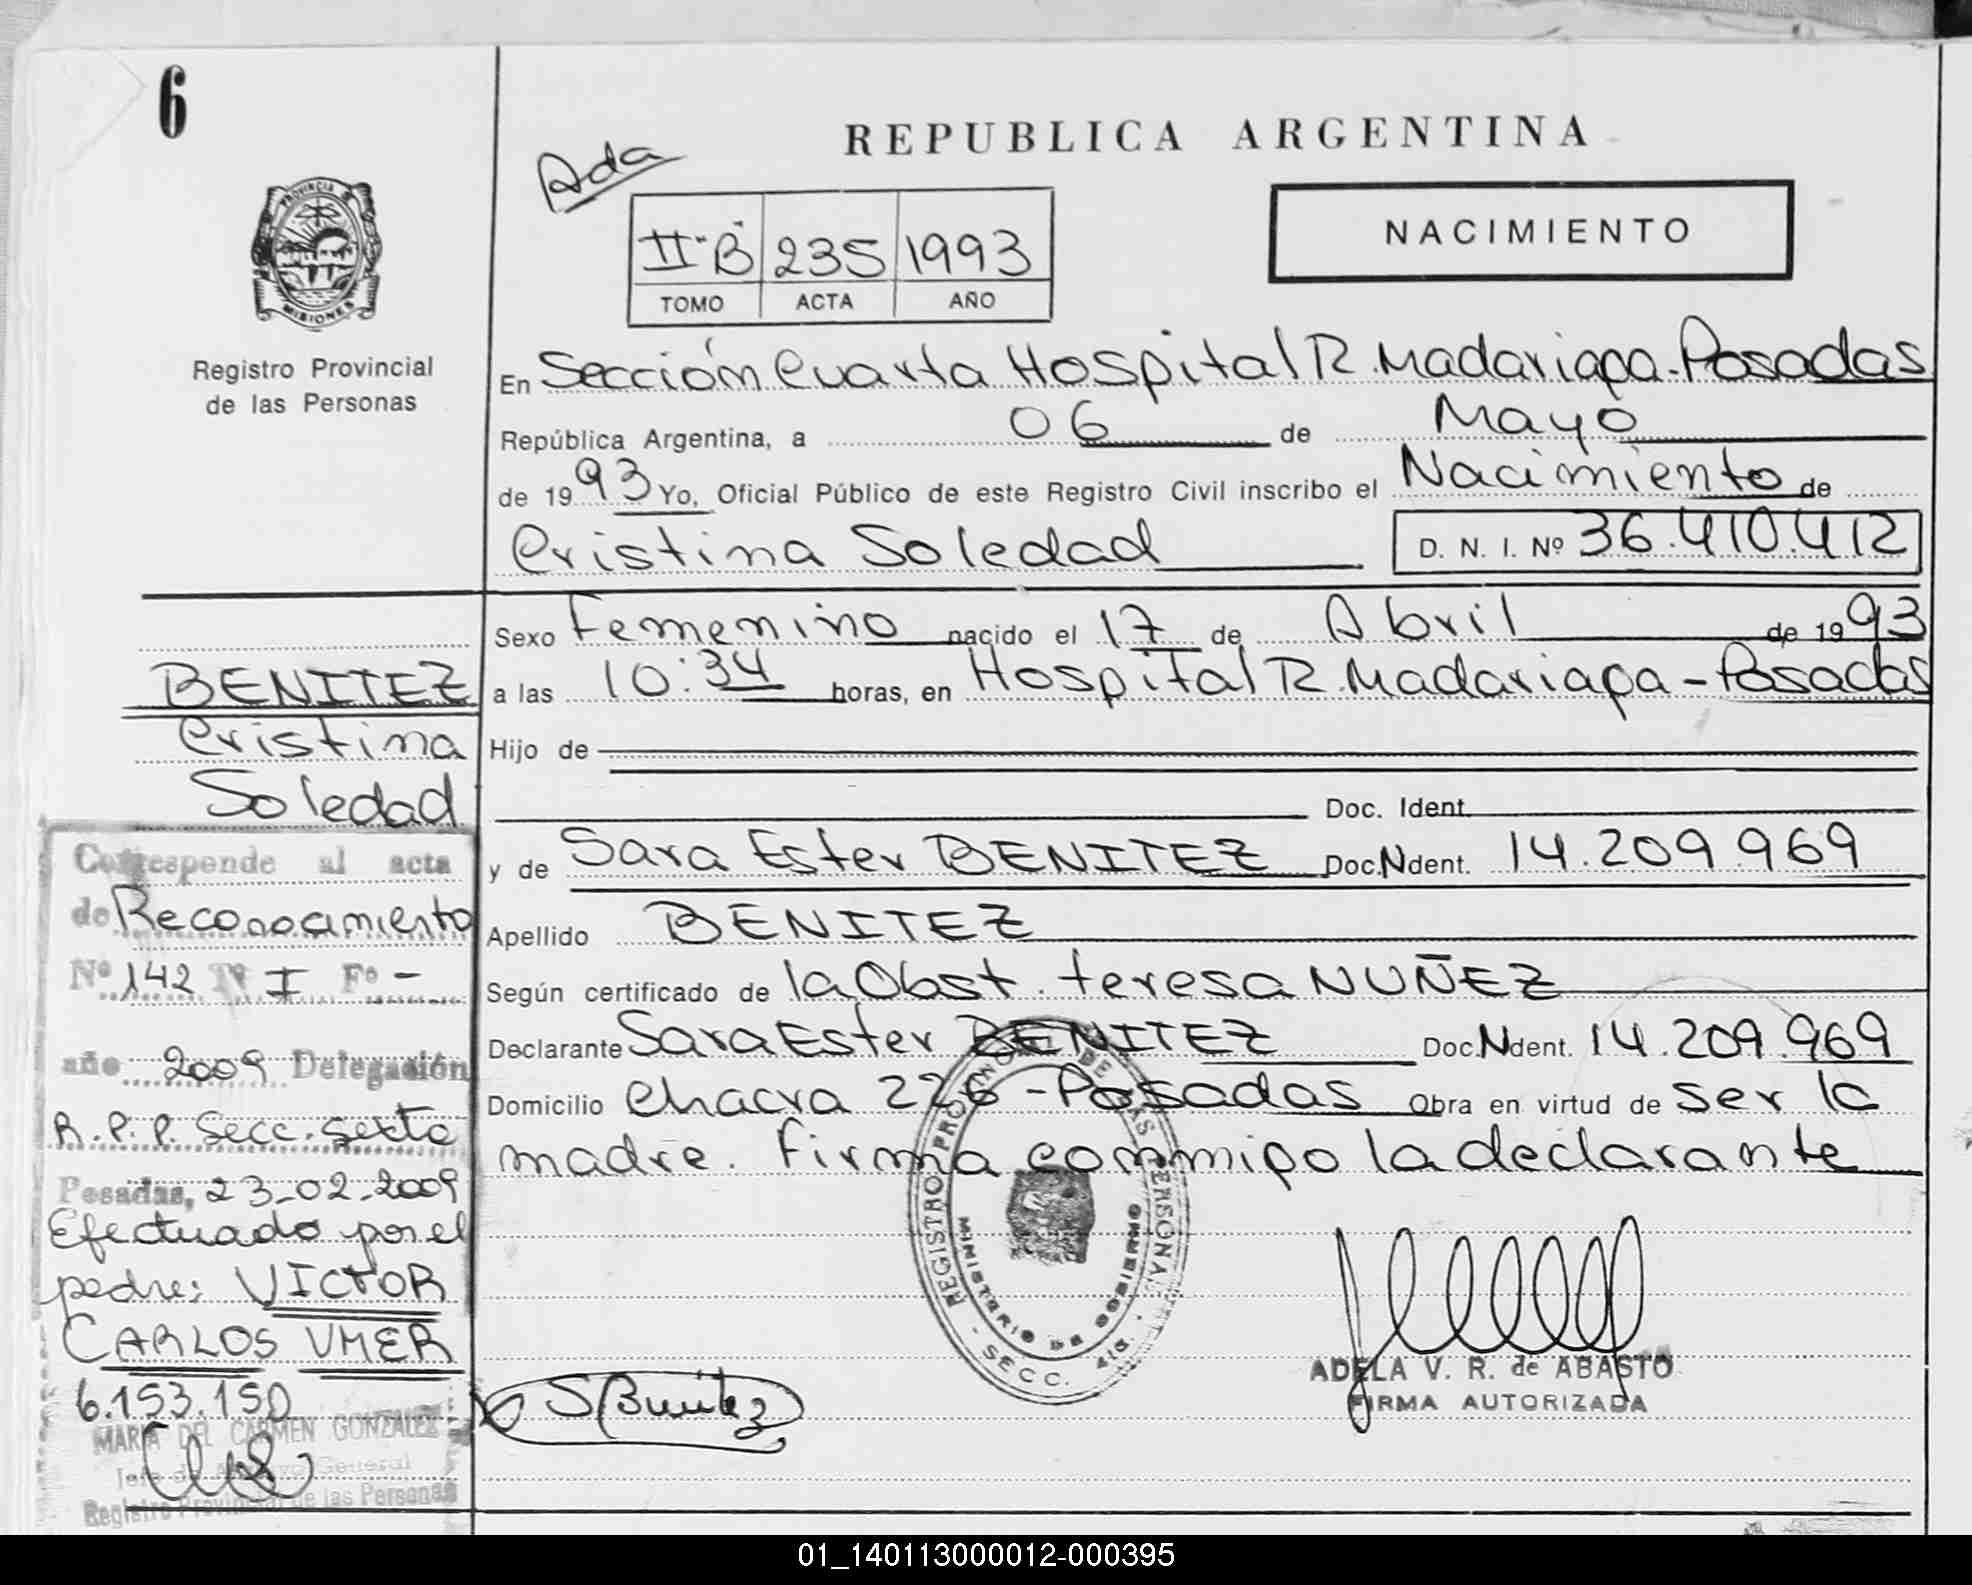 6
REPUBLICA ARGENTINA
Ada
NACIMIENTO
II-"B" 235 1993
TOMO ACTA AÑO
PROVINCIA
MISIONES
Registro Provincial
de las Personas
En Sección Cuarta Hospital R. Madariaga-Posadas
República Argentina, a 06 de Mayo
de 1993 Yo, Oficial Público de este Registro Civil inscribo el Nacimiento de
Cristina Soledad D. N. I. Nº 36.410.412
Sexo Femenino nacido el 17 de Abril de 1993
a las 10:34 horas, en Hospital R. Madariaga - Posadas
Hijo de
Doc. Ident.
y de Sara Ester BENITEZ Doc.Ndent. 14.209.969
Apellido BENITEZ
Según certificado de la Obst. teresa NUÑEZ
Declarante Sara Ester BENITEZ Doc.Ndent. 14.209.969
Domicilio Chacra 226 - Posadas Obra en virtud de ser la
madre. firma conmigo la declarante
BENITEZ
Cristina
Soledad
Corresponde al acta
de Reconocimiento
Nº 142 Tº I Fº -
año 2009 Delegación
R.P.P. Secc. sexta
Posadas, 23-02-2009
Efectuado por el
padre: VICTOR
CARLOS VMER
6.153.150
MARIA DEL CARMEN GONZALEZ
Jefe de Archivo General
Registro Provincial de las Personas
REGISTRO PROVINCIAL DE LAS PERSONAS
MINISTERIO DE GOBIERNO
- SECC. 4ta. -
S Benitez
ADELA V. R. de ABASTO
FIRMA AUTORIZADA
01_140113000012-000395